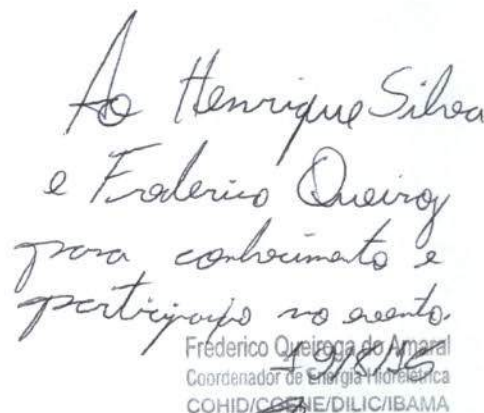 Ao Henrique Silva
e Frederico Queiroz
para conhecimento e
participação no evento.
Frederico Queiroga do Amaral
19/8/15
Coordenador de Energia Hidrelétrica
COHID/CGENE/DILIC/IBAMA